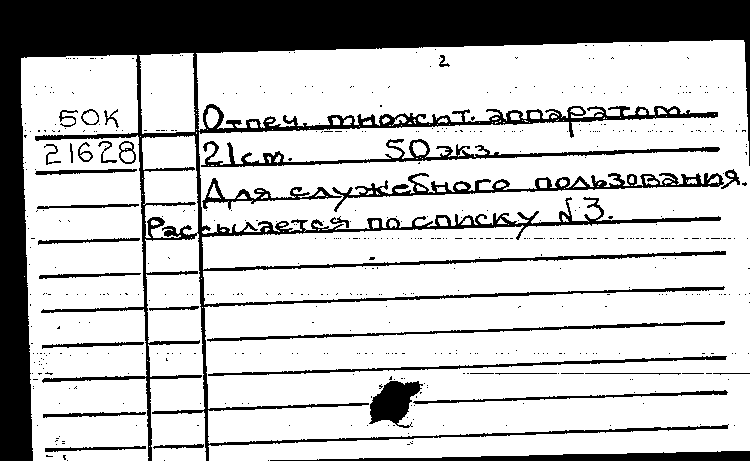 2
50К Отпеч. множит. аппаратом.
21628 21 см. 50 экз.
Для служебного пользования.
Рассылается по списку №3.